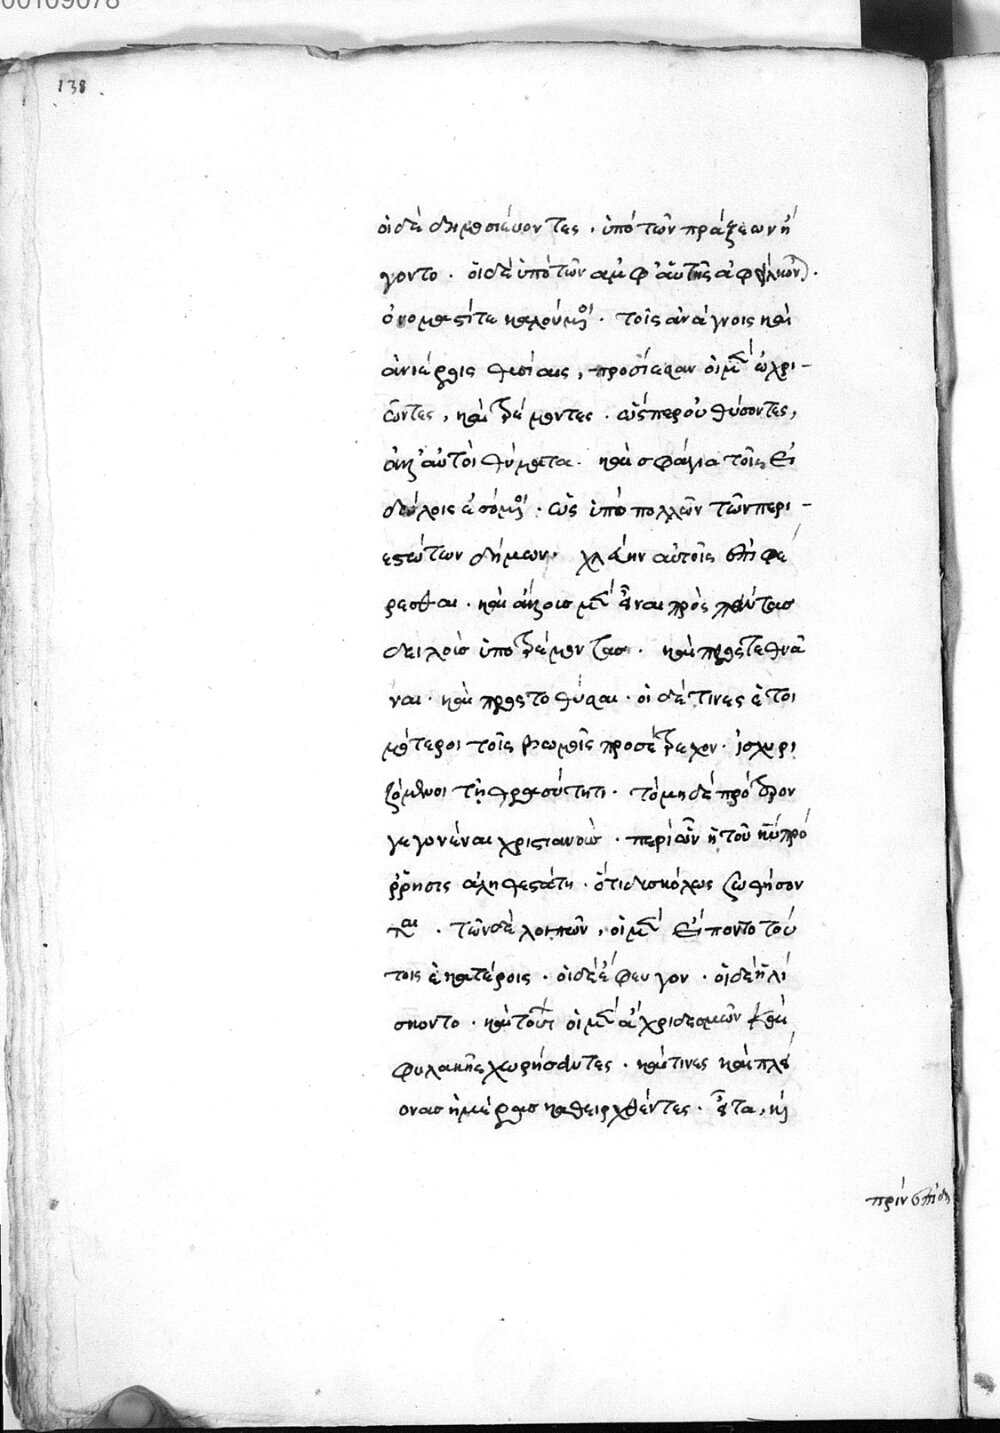 00109078
138
οἱ δὲ δημοσιεύοντες . ὑπὸ τῶν πράξεων ἤ
γοντο . οἱ δὲ ὑπὸ τῶν ἀμφ' αὐτῆς
ὀνομαστί τε καλούμενοι . τοῖς ἀνάγνοις καὶ
ἀνιέροις θυσίαις , προσίεσαν οἱ μὲν ὠχρι -
ῶντες , καὶ τρέμοντες . ὥσπερ οὐ θύσοντες ,
ἀλλ' αὐτοὶ θύματα . καὶ σφάγια τοῖς εἰ
δώλοις ἐσόμενοι . ὡς ὑπὸ πολλῶν τῶν περι -
εστώτων δήμων . χλεύην αὐτοῖς ἐπιφέ
ρεσθαι . καὶ δήλοις μὲν εἶναι πρὸς πάντας
δειλοὺς ὑπὸ τρέμοντας . καὶ πρὸς τὸ τεθνᾶ
ναι . καὶ πρὸς τὸ θῦσαι . οἱ δέ τινες ἑτοι
μότεροι τοῖς βωμοῖς προσέτρεχον . ἰσχυρι
ζόμενοι τῇ θρασύτητι . τὸ μηδὲ πρότερον
γεγονέναι χριστιανούς . περὶ ὧν ἡ τοῦ κυ πρό
ρρησις ἀληθεστάτη . ὅτι δυσκόλως σωθήσον
ται . τῶν δὲ λοιπῶν , οἱ μὲν εἵποντο τού
τοις ἑκατέροις . οἱ δὲ ἔφευγον . οἱ δὲ ἡλί
σκοντο . καὶ τούτων οἱ μὲν ἄχρι δεσμῶν καὶ
φυλακῆς χωρήσαντες . καί τινες καὶ πλεί
ονας ἡμέρας καθειρχθέντες . εἶτα , καὶ
πρὶν ἐπὶ δι